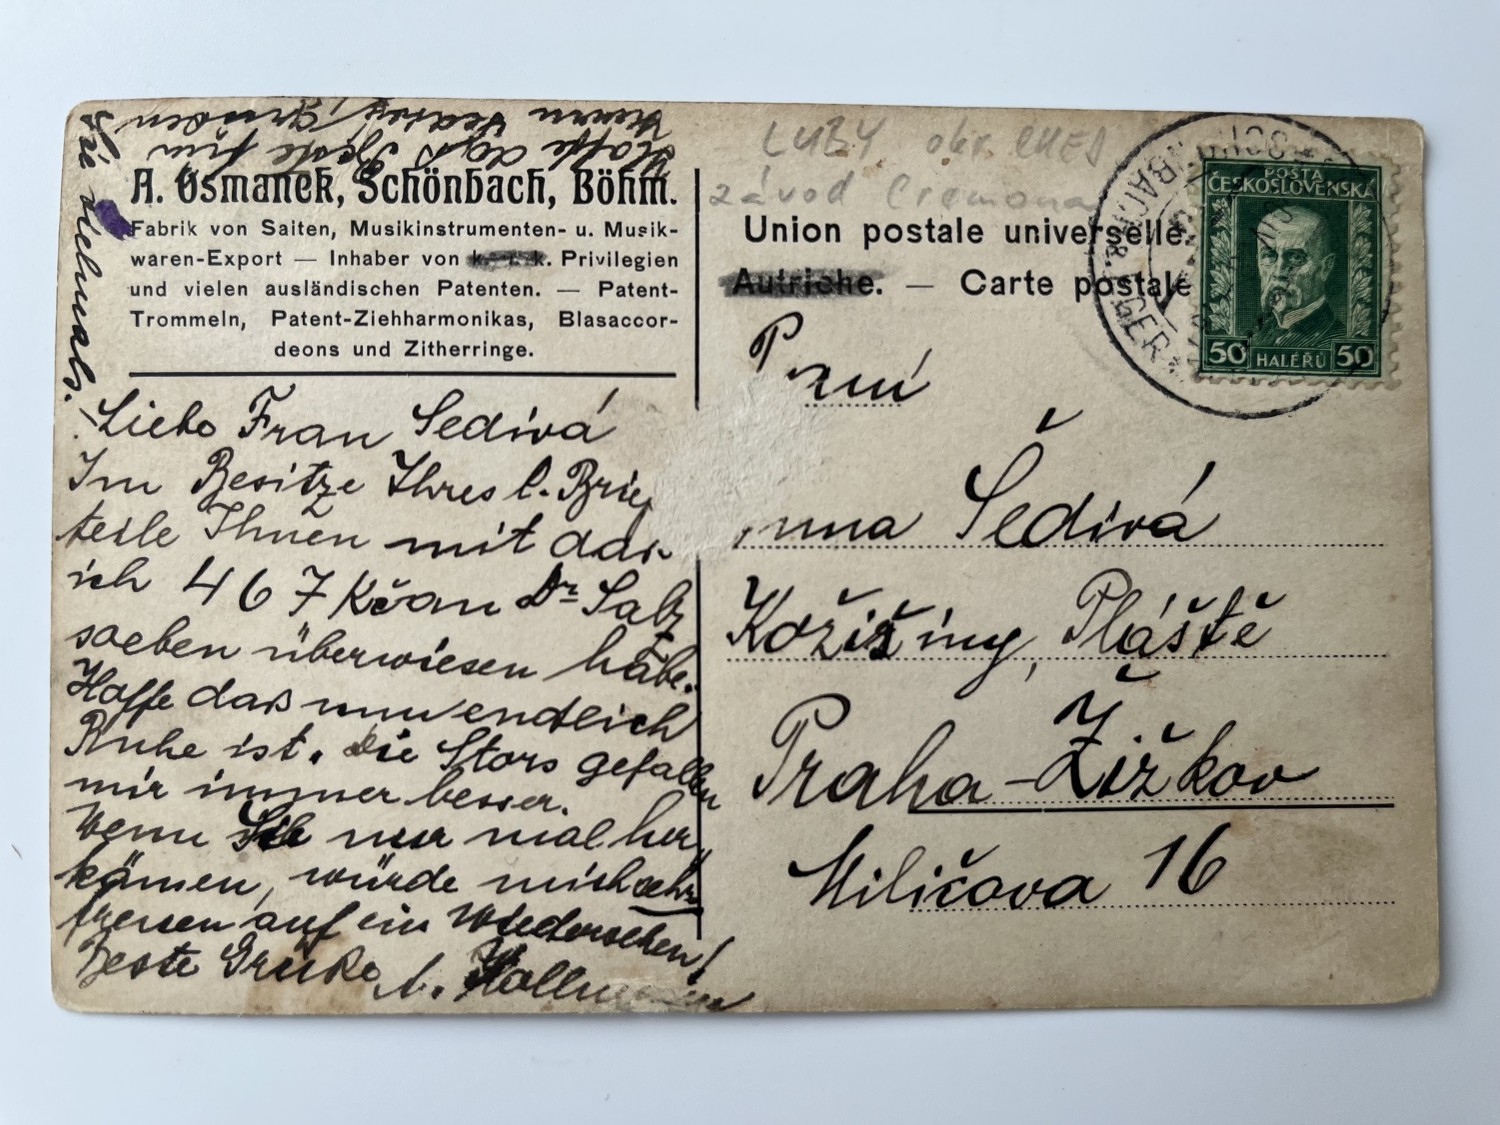 A. Osmanek, Schönbach, Böhm.
Fabrik von Saiten, Musikinstrumenten- u. Musik-
waren-Export — Inhaber von k. u. k. Privilegien
und vielen ausländischen Patenten. — Patent-
Trommeln, Patent-Ziehharmonikas, Blasaccor-
deons und Zitherringe.
Hoffe das Beste für
Sie vielmals.
Liebe Frau Sedivá
Im Besitze Ihres l. Brie
teile Ihnen mit das
ich 467 Kč an Dr Salz
soeben überwiesen habe.
Hoffe das nun endlich
Ruhe ist. Die Stors gefallen
mir immer besser.
Wenn Sie nur mal her
kämen, würde mich sehr
freuen auf ein Wiedersehen!
Beste Grüße A.
LUBY okr. CHEB
závod Cremona
Union postale universelle.
Autriche. — Carte postale
Paní
nna Šedivá
Kožišiny, Pláště
Praha-Žižkov
Miličova 16
POŠTA
ČESKOSLOVENSKÁ
50 HALÉŘŮ 50